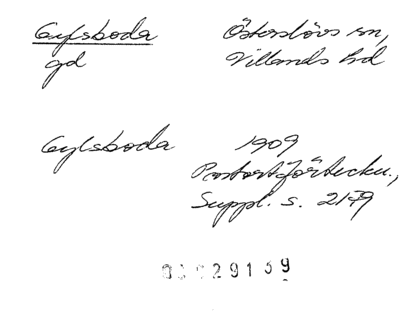 Gylsboda Österslövs sn,
gd Villands hd
Gylsboda 1909
Postortförteckn.,
Suppl. s. 2179
29139